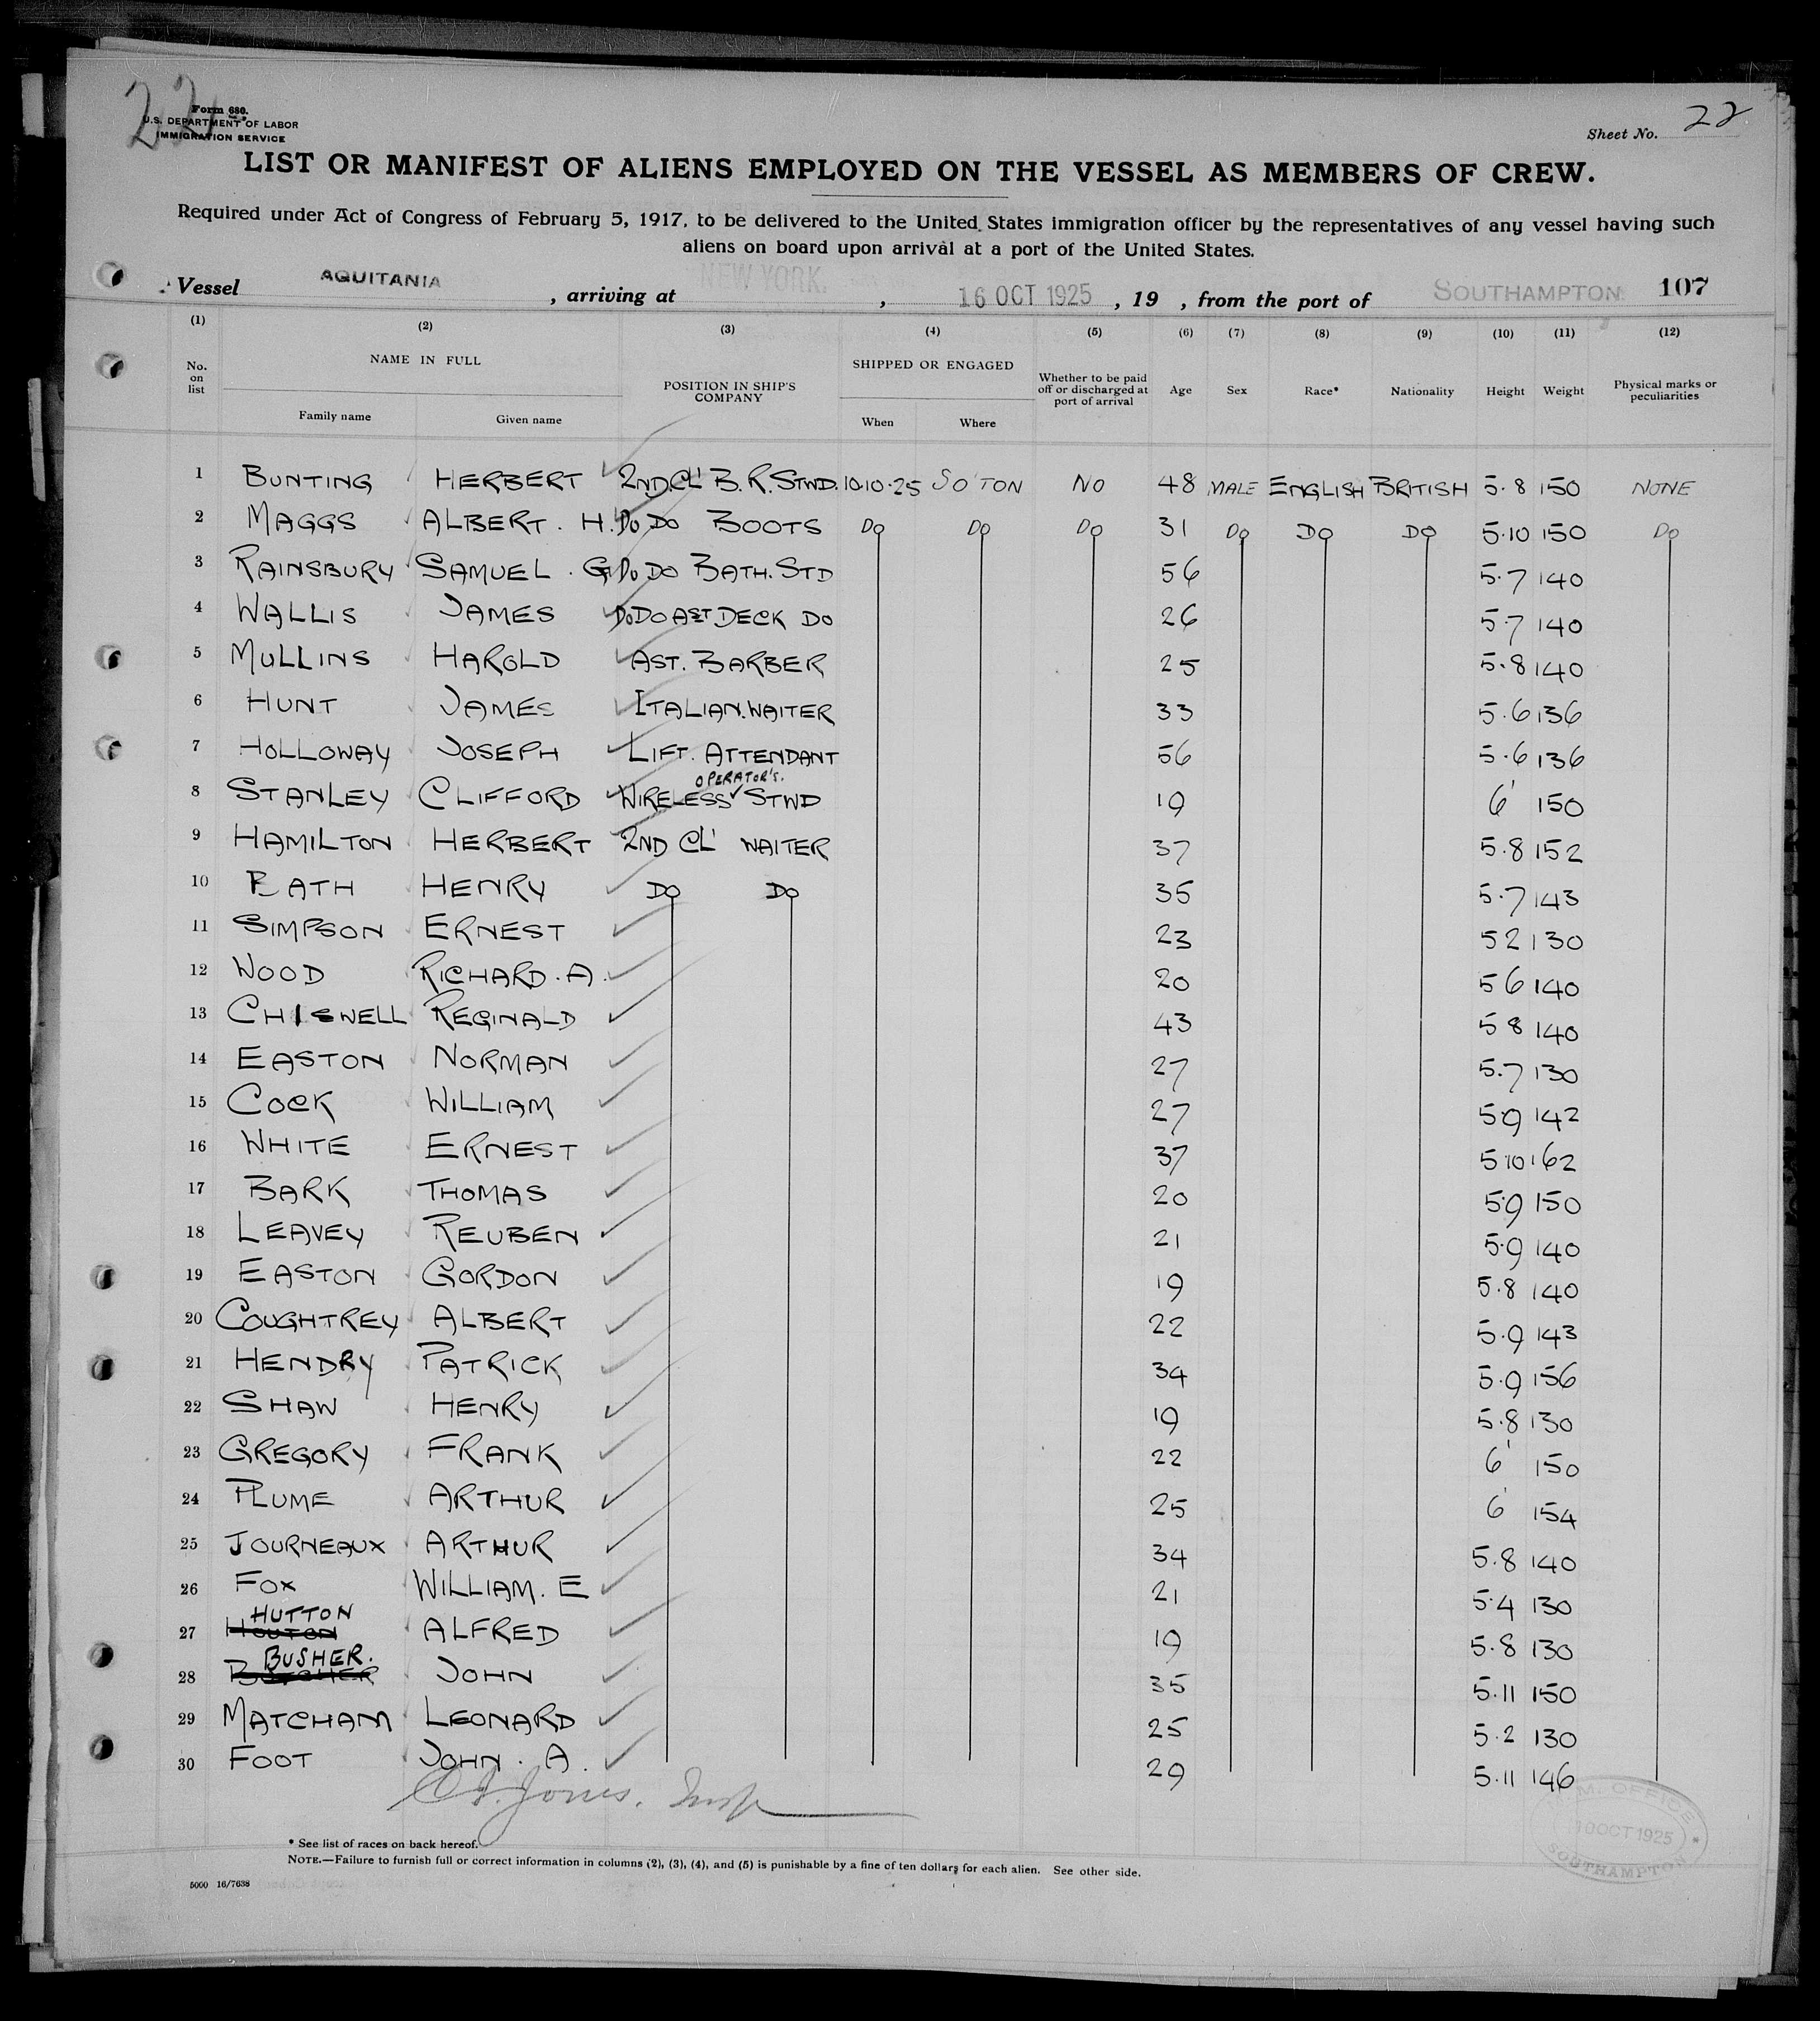 22
Form 680.
U.S. DEPARTMENT OF LABOR
IMMIGRATION SERVICE
Sheet No. 22
LIST OR MANIFEST OF ALIENS EMPLOYED ON THE VESSEL AS MEMBERS OF CREW.
Required under Act of Congress of February 5, 1917, to be delivered to the United States immigration officer by the representatives of any vessel having such
aliens on board upon arrival at a port of the United States.
Vessel AQUITANIA, arriving at NEW YORK., 16 OCT 1925, 19 , from the port of SOUTHAMPTON 107
(1) (2) (3) (4) (5) (6) (7) (8) (9) (10) (11) (12)
No. on list NAME IN FULL Family name Given name POSITION IN SHIP'S COMPANY SHIPPED OR ENGAGED When Where Whether to be paid off or discharged at port of arrival Age Sex Race* Nationality Height Weight Physical marks or peculiarities
1 BUNTING HERBERT 2ND.CL' B.R.STWD. 10.10.25 SO'TON NO 48 MALE ENGLISH BRITISH 5.8 150 NONE
2 MAGGS ALBERT. H. DO DO BOOTS DO DO DO 31 DO DO DO 5.10 150 DO
3 RAINSBURY SAMUEL. G DO DO BATH. STD 56 5.7 140
4 WALLIS JAMES DO DO AST DECK DO 26 5.7 140
5 MULLINS HAROLD AST. BARBER 25 5.8 140
6 HUNT JAMES ITALIAN. WAITER 33 5.6 136
7 HOLLOWAY JOSEPH LIFT. ATTENDANT 56 5.6 136
8 STANLEY CLIFFORD WIRELESS OPERATOR'S. STWD 19 6' 150
9 HAMILTON HERBERT 2ND CL' WAITER 37 5.8 152
10 BATH HENRY DO DO 35 5.7 143
11 SIMPSON ERNEST 23 5 2 130
12 WOOD RICHARD. A. 20 5 6 140
13 CHISWELL REGINALD 43 5 8 140
14 EASTON NORMAN 27 5.7 130
15 COCK WILLIAM 27 5.9 142
16 WHITE ERNEST 37 5.10 162
17 BARK THOMAS 20 5.9 150
18 LEAVEY REUBEN 21 5.9 140
19 EASTON GORDON 19 5.8 140
20 COUGHTREY ALBERT 22 5.9 143
21 HENDRY PATRICK 34 5.9 156
22 SHAW HENRY 19 5.8 130
23 GREGORY FRANK 22 6' 150
24 PLUME ARTHUR 25 6' 154
25 JOURNEAUX ARTHUR 34 5.8 140
26 FOX WILLIAM. E 21 5.4 130
27 HUTTON ALFRED 19 5.8 130
28 BUSHER. JOHN 35 5.11 150
29 MATCHAM LEONARD 25 5.2 130
30 FOOT JOHN. A. 29 5.11 146
Jones. Insp
IMM. OFFICE
10 OCT 1925
SOUTHAMPTON
* See list of races on back hereof.
NOTE.—Failure to furnish full or correct information in columns (2), (3), (4), and (5) is punishable by a fine of ten dollars for each alien. See other side.
5000 16/7638